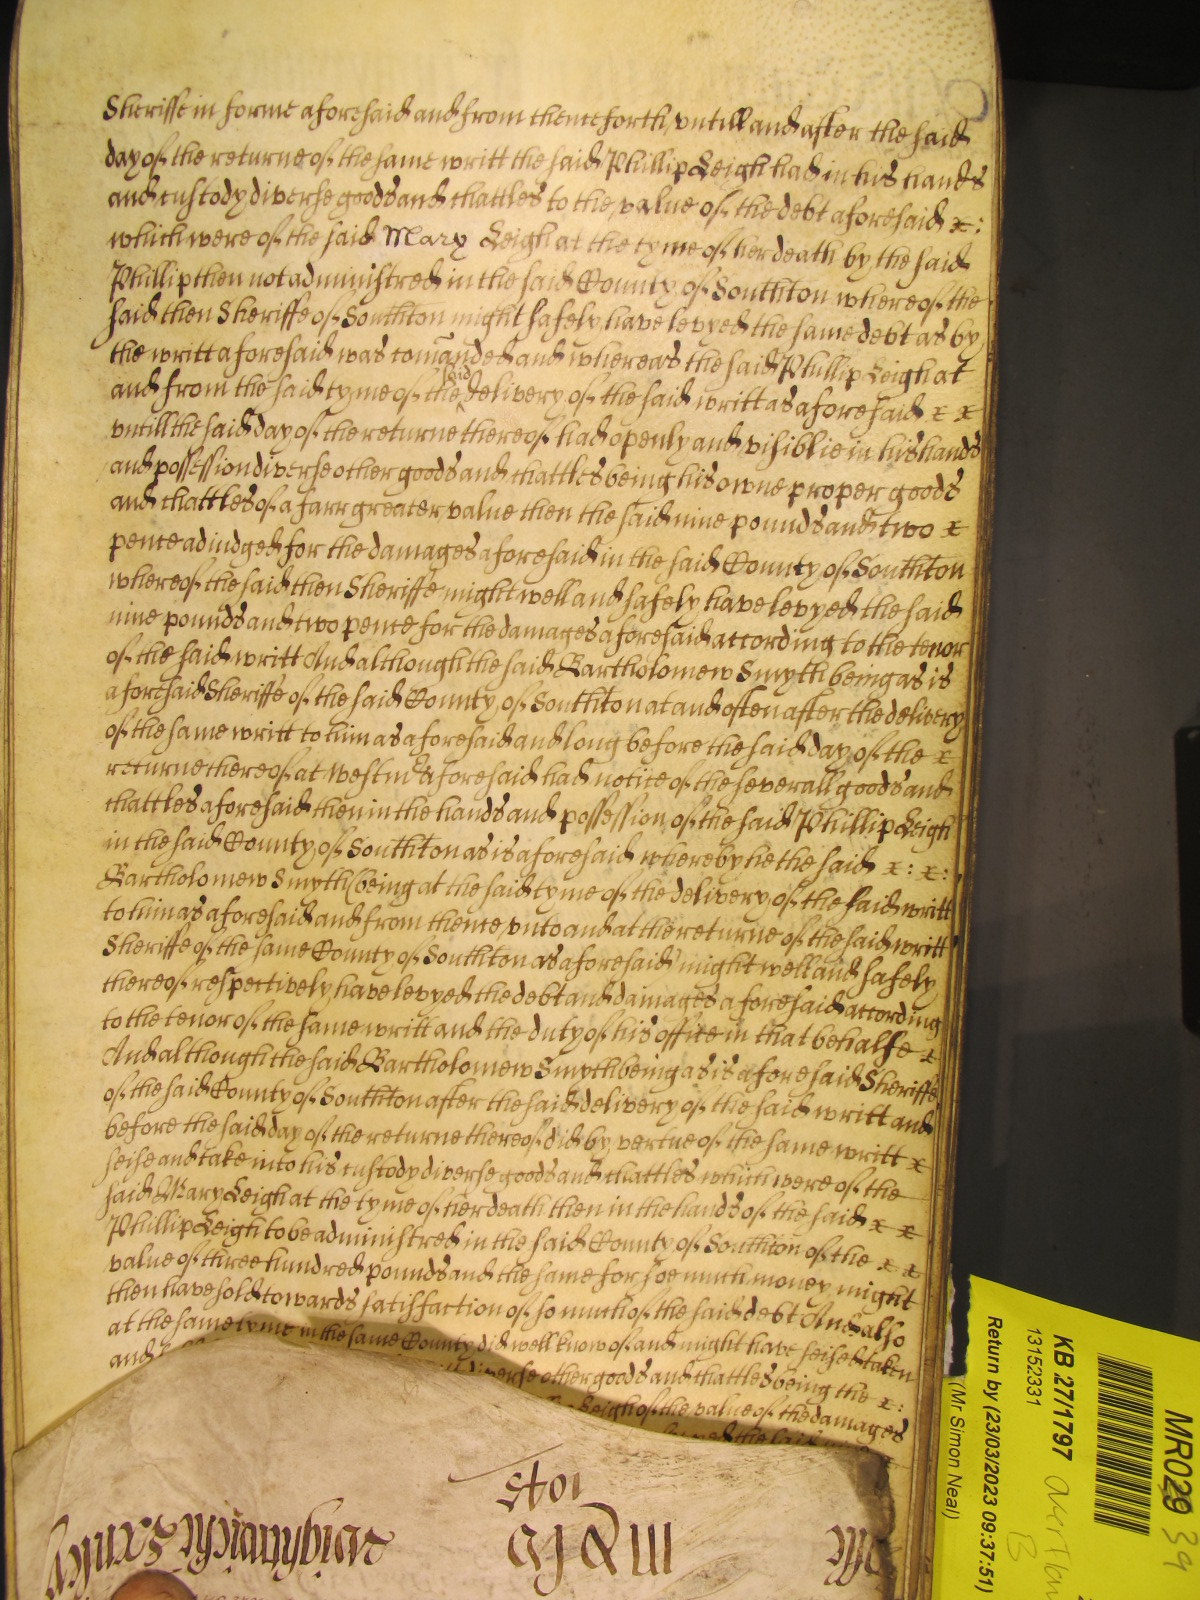 Sheriffe in forme aforesaid and from thenceforth untill and after the said
day of the returne of the same writt the said Phillip Leigh had in his hands
and custody diverse goods and chattles to the value of the debt aforesaid x:
which were of the said Mary Leigh at the tyme of her death by the said
Phillip then not administred in the said County of Southton whereof the
said then Sheriffe of Southton might safely have levyed the same debt as by
the writt aforesaid was comanded and whereas the said Phillip Leigh at
and from the said tyme of the said delivery of the said writt as aforesaid x x
untill the said day of the returne thereof had openly and visiblie in his hands
and possession diverse other goods and chattles being his owne proper goods
and chattles of a farr greater value then the said nine pounds and two x
pence adiudged for the damages aforesaid in the said County of Southton
whereof the said then Sheriffe might well and safely have levyed the said
nine pounds and two pence for the damages aforesaid according to the tenor
of the said writt And although the said Bartholomew Smyth being as is
aforesaid Sheriffe of the said County of Southton at and often after the delivery
of the same writt to him as aforesaid and long before the said day of the x
returne thereof at Westmr aforesaid had notice of the severall goods and
chattles aforesaid then in the hands and possession of the said Phillip Leigh
in the said County of Southton as is aforesaid whereby he the said x: x:
Bartholomew Smyth (being at the said tyme of the delivery of the said writt
to him as aforesaid and from thence unto and at the returne of the said writt
Sheriffe of the same County of Southton as aforesaid) might well and safely
thereof respectively have levyed the debt and damages aforesaid according
to the tenor of the same writt and the duty of his office in that behalfe x
And although the said Bartholomew Smyth being as is aforesaid Sheriffe
of the said County of Southton after the said delivery of the said writt and
before the said day of the returne thereof did by vertue of the same writt x
seise and take into his custody diverse goods and chattles which were of the
said Mary Leigh at the tyme of her death then in the hands of the said x x
Phillip Leigh to be administred in the said County of Southton of the x x
value of three hundred pounds and the same for soe much money might
then have sold towards satisfaction of so much of the said debt And also
at the same tyme in the same County did well know of and might have seised taken
and diverse other goods and chattles being the x:
Leigh of the value of the damages
the said
MR029
39
KB 27/1797
13152331
Return by (23/03/2023 09:37:51)
(Mr Simon Neal)